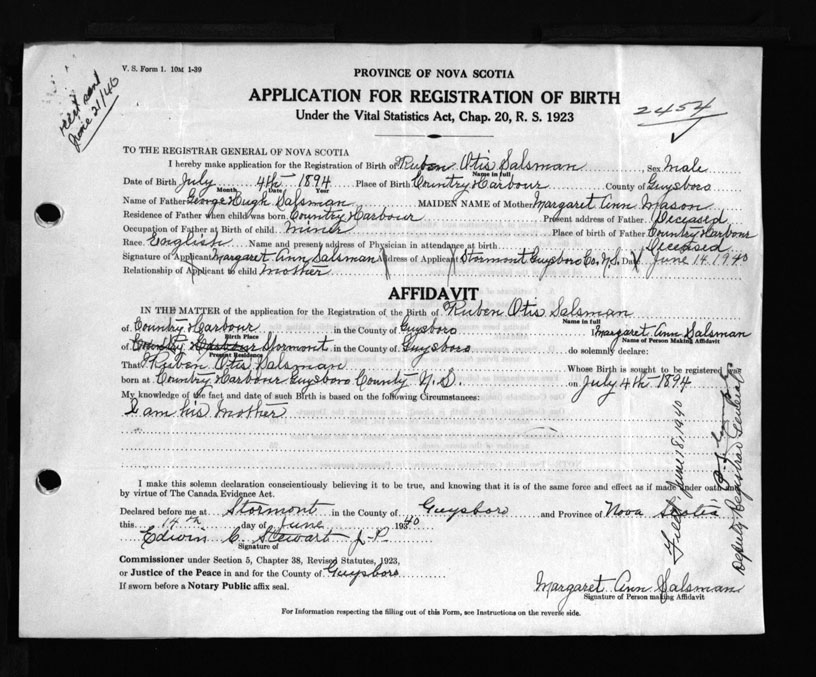 V. S. Form 1. 10M 1-39
Rec't sent
June 21/40
PROVINCE OF NOVA SCOTIA
APPLICATION FOR REGISTRATION OF BIRTH
Under the Vital Statistics Act, Chap. 20, R. S. 1923
2454
TO THE REGISTRAR GENERAL OF NOVA SCOTIA
I hereby make application for the Registration of Birth of Ruben Otis Salsman Sex Male
Name in full
Date of Birth July 4th 1894 Place of Birth Country Harbour County of Guysboro
Month Date Year
Name of Father George Hugh Salsman MAIDEN NAME of Mother Margaret Ann Mason
Residence of Father when child was born Country Harbour Present address of Father Deceased
Occupation of Father at Birth of child miner Place of birth of Father Country Harbour
Race English Name and present address of Physician in attendance at birth Deceased
Signature of Applicant Margaret Ann Salsman Address of Applicant Stormont Guysboro Co. N.S. Date June 14 1940
Relationship of Applicant to child mother
AFFIDAVIT
IN THE MATTER of the application for the Registration of the Birth of Ruben Otis Salsman
Name in full
of Country Harbour in the County of Guysboro Margaret Ann Salsman
Birth Place Name of Person Making Affidavit
of Country Harbour Stormont in the County of Guysboro do solemnly declare:
Present Residence
That Ruben Otis Salsman Whose Birth is sought to be registered was
born at Country Harbour Guysboro County N.S. on July 4th 1894
My knowledge of the fact and date of such Birth is based on the following Circumstances:
I am his mother
I make this solemn declaration conscientiously believing it to be true, and knowing that it is of the same force and effect as if made under oath and
by virtue of The Canada Evidence Act.
Declared before me at Stormont in the County of Guysboro and Province of Nova Scotia
this 14th day of June 1940
Edwin C. Stewart J-P
Signature of
Commissioner under Section 5, Chapter 38, Revised Statutes, 1923,
or Justice of the Peace in and for the County of Guysboro
If sworn before a Notary Public affix seal.
Margaret Ann Salsman
Signature of Person making Affidavit
For Information respecting the filling out of this Form, see Instructions on the reverse side.
Filed June 18, 1940
Deputy Registrar General